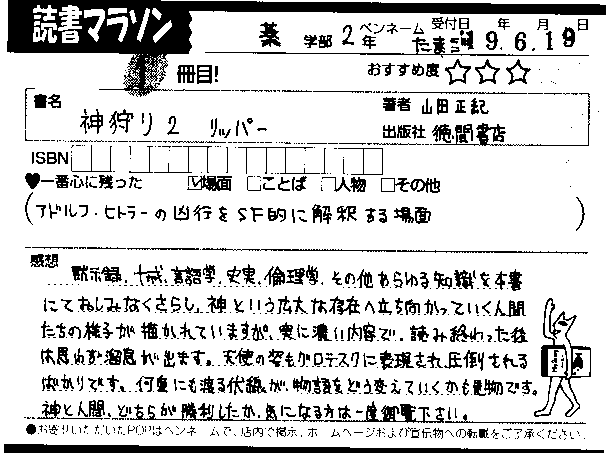 読書マラソン
薬 学部 2年 ペンネーム たまご 受付日 年 月 日
19.6.19
1 冊目! おすすめ度 ☆☆☆
書名 神狩り2 リッパー
著者 山田正紀
出版社 徳間書店
ISBN
♥一番心に残った ☑場面 □ことば □人物 □その他
(アドルフ・ヒトラーの凶行をSF的に解釈する場面)
感想
黙示録、十戒、言語学、史実、倫理学、その他あらゆる知識を本書
にておしみなくさらし、神という広大な存在へ立ち向かっていく人間
たちの様子が描かれていますが、実に濃い内容で、読み終わった後
は思わず溜息が出ます。天使の姿もグロテスクに表現され、圧倒される
ばかりです。何重にも渡る伏線が、物語をどう変えていくかも見物です。
神と人間、どちらが勝利したか、気になる方は一度御覧下さい。
●お寄りいただいたPOPはペンネームで、店内で掲示、ホームページおよび宣伝物への転載をご了承ください。